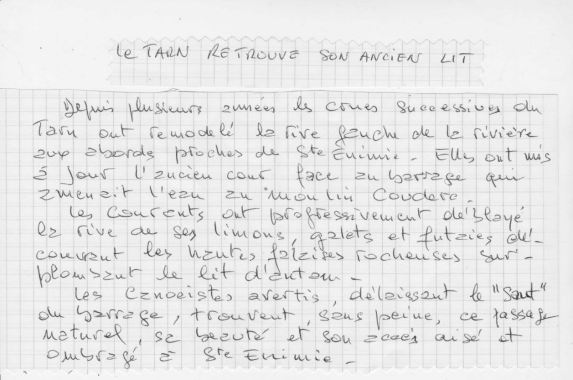 Le TARN RETROUVE SON ANCIEN LIT
Depuis plusieurs années les crues successives du
Tarn ont remodelé la rive gauche de la rivière
aux abords proches de Ste Enimie. Elles ont mis
à jour l'ancien cour face au barrage qui
amenait l'eau au Moulin Couderc.
Les Courants ont progressivement déblayé
la rive de ses limons, galets et futaies dé-
couvrant les hautes falaises rocheuses sur-
plombant le lit d'antan -
Les Canoeistes avertis, délaissant le "Saut"
du barrage, trouvent, sans peine, ce passage
naturel, sa beauté et son accès aisé et
ombragé à Ste Enimie -